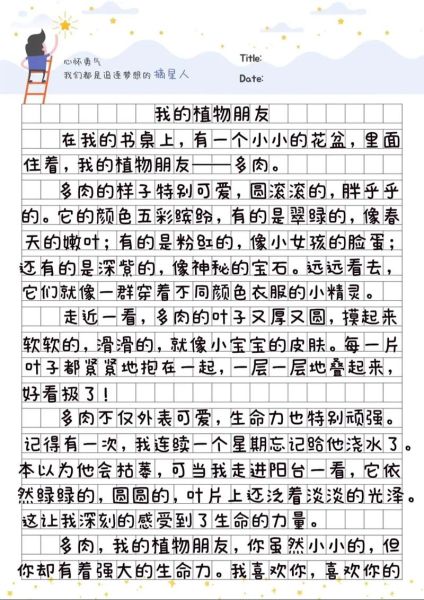 心怀勇气
我们都是追逐梦想的 摘星人
Title:
Date:
我的植物朋友
在我的书桌上，有一个小小的花盆，里面
住着，我的植物朋友——多肉。
多肉的样子特别可爱，圆滚滚的，胖乎乎
的。它的颜色五彩缤纷，有的是翠绿的，像春
天的嫩叶；有的是粉红的，像小女孩的脸蛋；
还有的是深紫的，像神秘的宝石。远远看去，
它们就像一群穿着不同颜色衣服的小精灵。
走近一看，多肉的叶子又厚又圆，摸起来
软软的，滑滑的，就像小宝宝的皮肤。每一片
叶子都紧紧地抱在一起，一层一层地叠起来，
好看极了！
多肉不仅外表可爱，生命力也特别顽强。
记得有一次，我连续一个星期忘记给他浇水了。
本以为他会枯萎，可当我走进阳台一看，它依
然绿绿的，圆圆的，叶片上还泛着淡淡的光泽。
这让我深刻的感受到了生命的力量。
多肉，我的植物朋友，你虽然小小的，但
你却有着强大的生命力。我喜欢你，喜欢你的